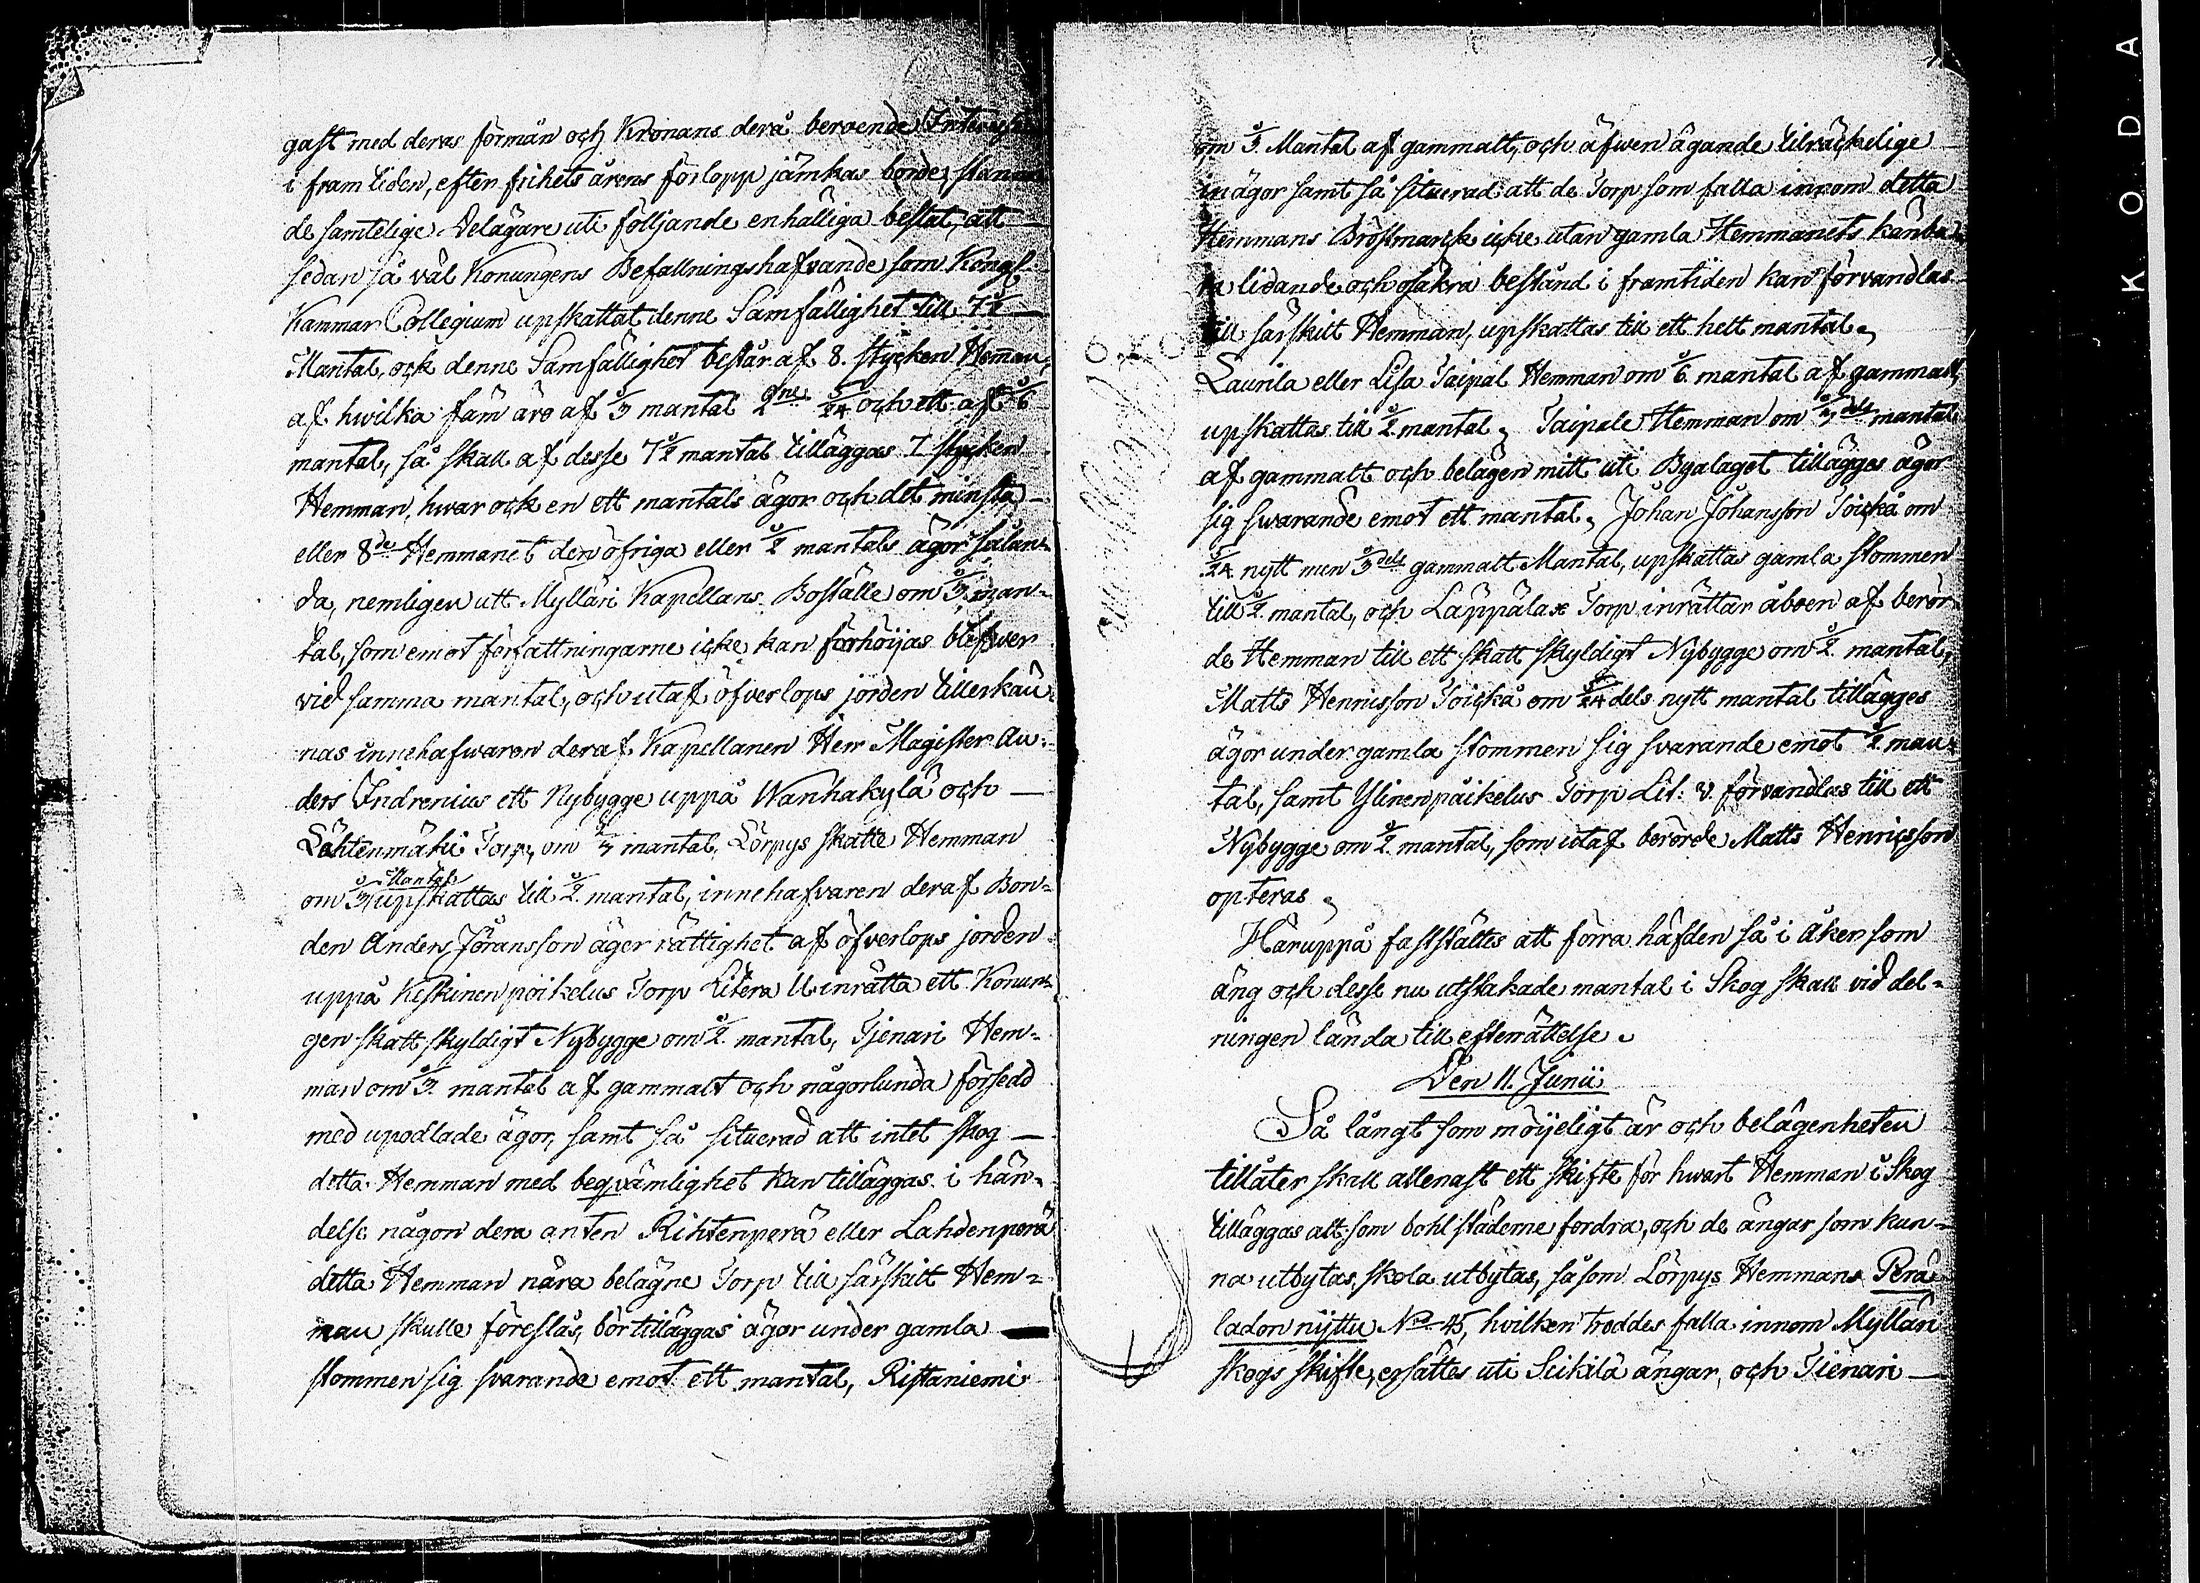 gast med deras förmån och Kronans derå beroende Interesse
i fram tiden, efter frihets årens förlopp jämkas borde, stanna
de samtelige Delägare uti följjande enhälliga beslut, att
sedan så väl Konungens Befallningshafvande som Kongl.
Kammar Collegium upskattat denne Samfällighet till 7 1/2
Mantal, ock denne Samfällighet består af 8. stycken Hemman,
af hwilka fäm äro af 1/3 mantal 2ne 5/24 och ett af 1/6
mantal, så skall af desse 7 1/2 mantal tilläggas 7 stycken
Hemman, hwar ock en ett mantals ägor och det minsta
eller 8de Hemmanet den öfriga eller 1/2 mantals ägor sålun-
da, nemligen att Mylläri Kapellans Boställe om 1/3 man-
tal, som emot författningarne icke kan förhöijas blifwer
vid samma mantal, och utaf öfverlops jorden tillerkän-
nas innehafwaren deraf Kapellanen Herr Magister An-
ders Indrenius ett Nybygge uppå Wanhakylä och
Lähtenmäki Torp, om 2/3 mantal, Lörpys skatte Hemman
om 1/3 Mantal upskattas till 1/2 mantal, innehafvaren deraf Bon-
den Anders Jöransson äger rättighet af öfverlops jorden
uppå Keskinen poikelus Torp Litera U inrätta ett Konun-
gen skatt skyldigt Nybygge om 1/2 mantal, Tjenari Hem-
man om 1/3 mantal af gammalt och någorlunda försedd
med upodlade ägor, samt så situerad att intet skog
detta Hemman med beqvämlighet kan tilläggas i hän-
delse någon dera anten Rihtenperä eller Lahdenperä
detta Hemman nära belägne Torp till särskilt Hem-
man skulle föreslås, bör tilläggas ägor under gamla
stommen sig svarande emot ett mantal, Ristaniemi
om 1/3 Mantal af gammalt, och äfwen ägande tilräckelige
inägor samt så situerad att de Torp som falla innom detta
Hemmans Bröstmark icke utan gamla Hemmanets känba-
ra lidande och osäkra bestånd i framtiden kan förvandlas
till särskilt Hemman, upskattas till ett helt mantal,
Laurila eller Lisa Taipal Hemman om 1/6 mantal af gammalt,
upskattas till 1/2 mantal, Taipale Hemman om 1/3 dels mantal
af gammalt och belägen mitt uti Byalaget tillägges ägor
sig swarande emot ett mantal, Johan Johansson Toickå om
5/24 nytt men 1/3 dels gammalt Mantal, upskattas gamla stommen
till 1/2 mantal, och Läppälax Torp inrättar åboen af berör-
de Hemman till ett skatt skyldigt Nybygge om 1/2 mantal,
Matts Henrisson Toickå om 5/24 dels nytt mantal tillägges
ägor under gamla stommen sig svarande emot 1/2 man-
tal, samt Ylinenpåikelus Torp Lit: V. förvandlas till ett
Nybygge om 1/2 mantal, som utaf berörde Matts Henricsson
opteras.
Häruppå fastställtes att förra häfden så i åker som
äng och desse nu utstakade mantal i Skog skall vid del-
ningen lända till efterrättelse.
Den 11. Junii
Så långt som möijeligt är och belägenheten
tillåter skall allenast ett skifte för hwart Hemman i Skog
tilläggas alt som bohl städerne fordra, och de ängar som kun-
na utbytas, skola utbytas, såsom Lörpys Hemmans Perä
ladon nijttu No 45, hvilken troddes falla innom Myllän
skogs skifte, ersättes uti Seikilä ängar, och Tienari